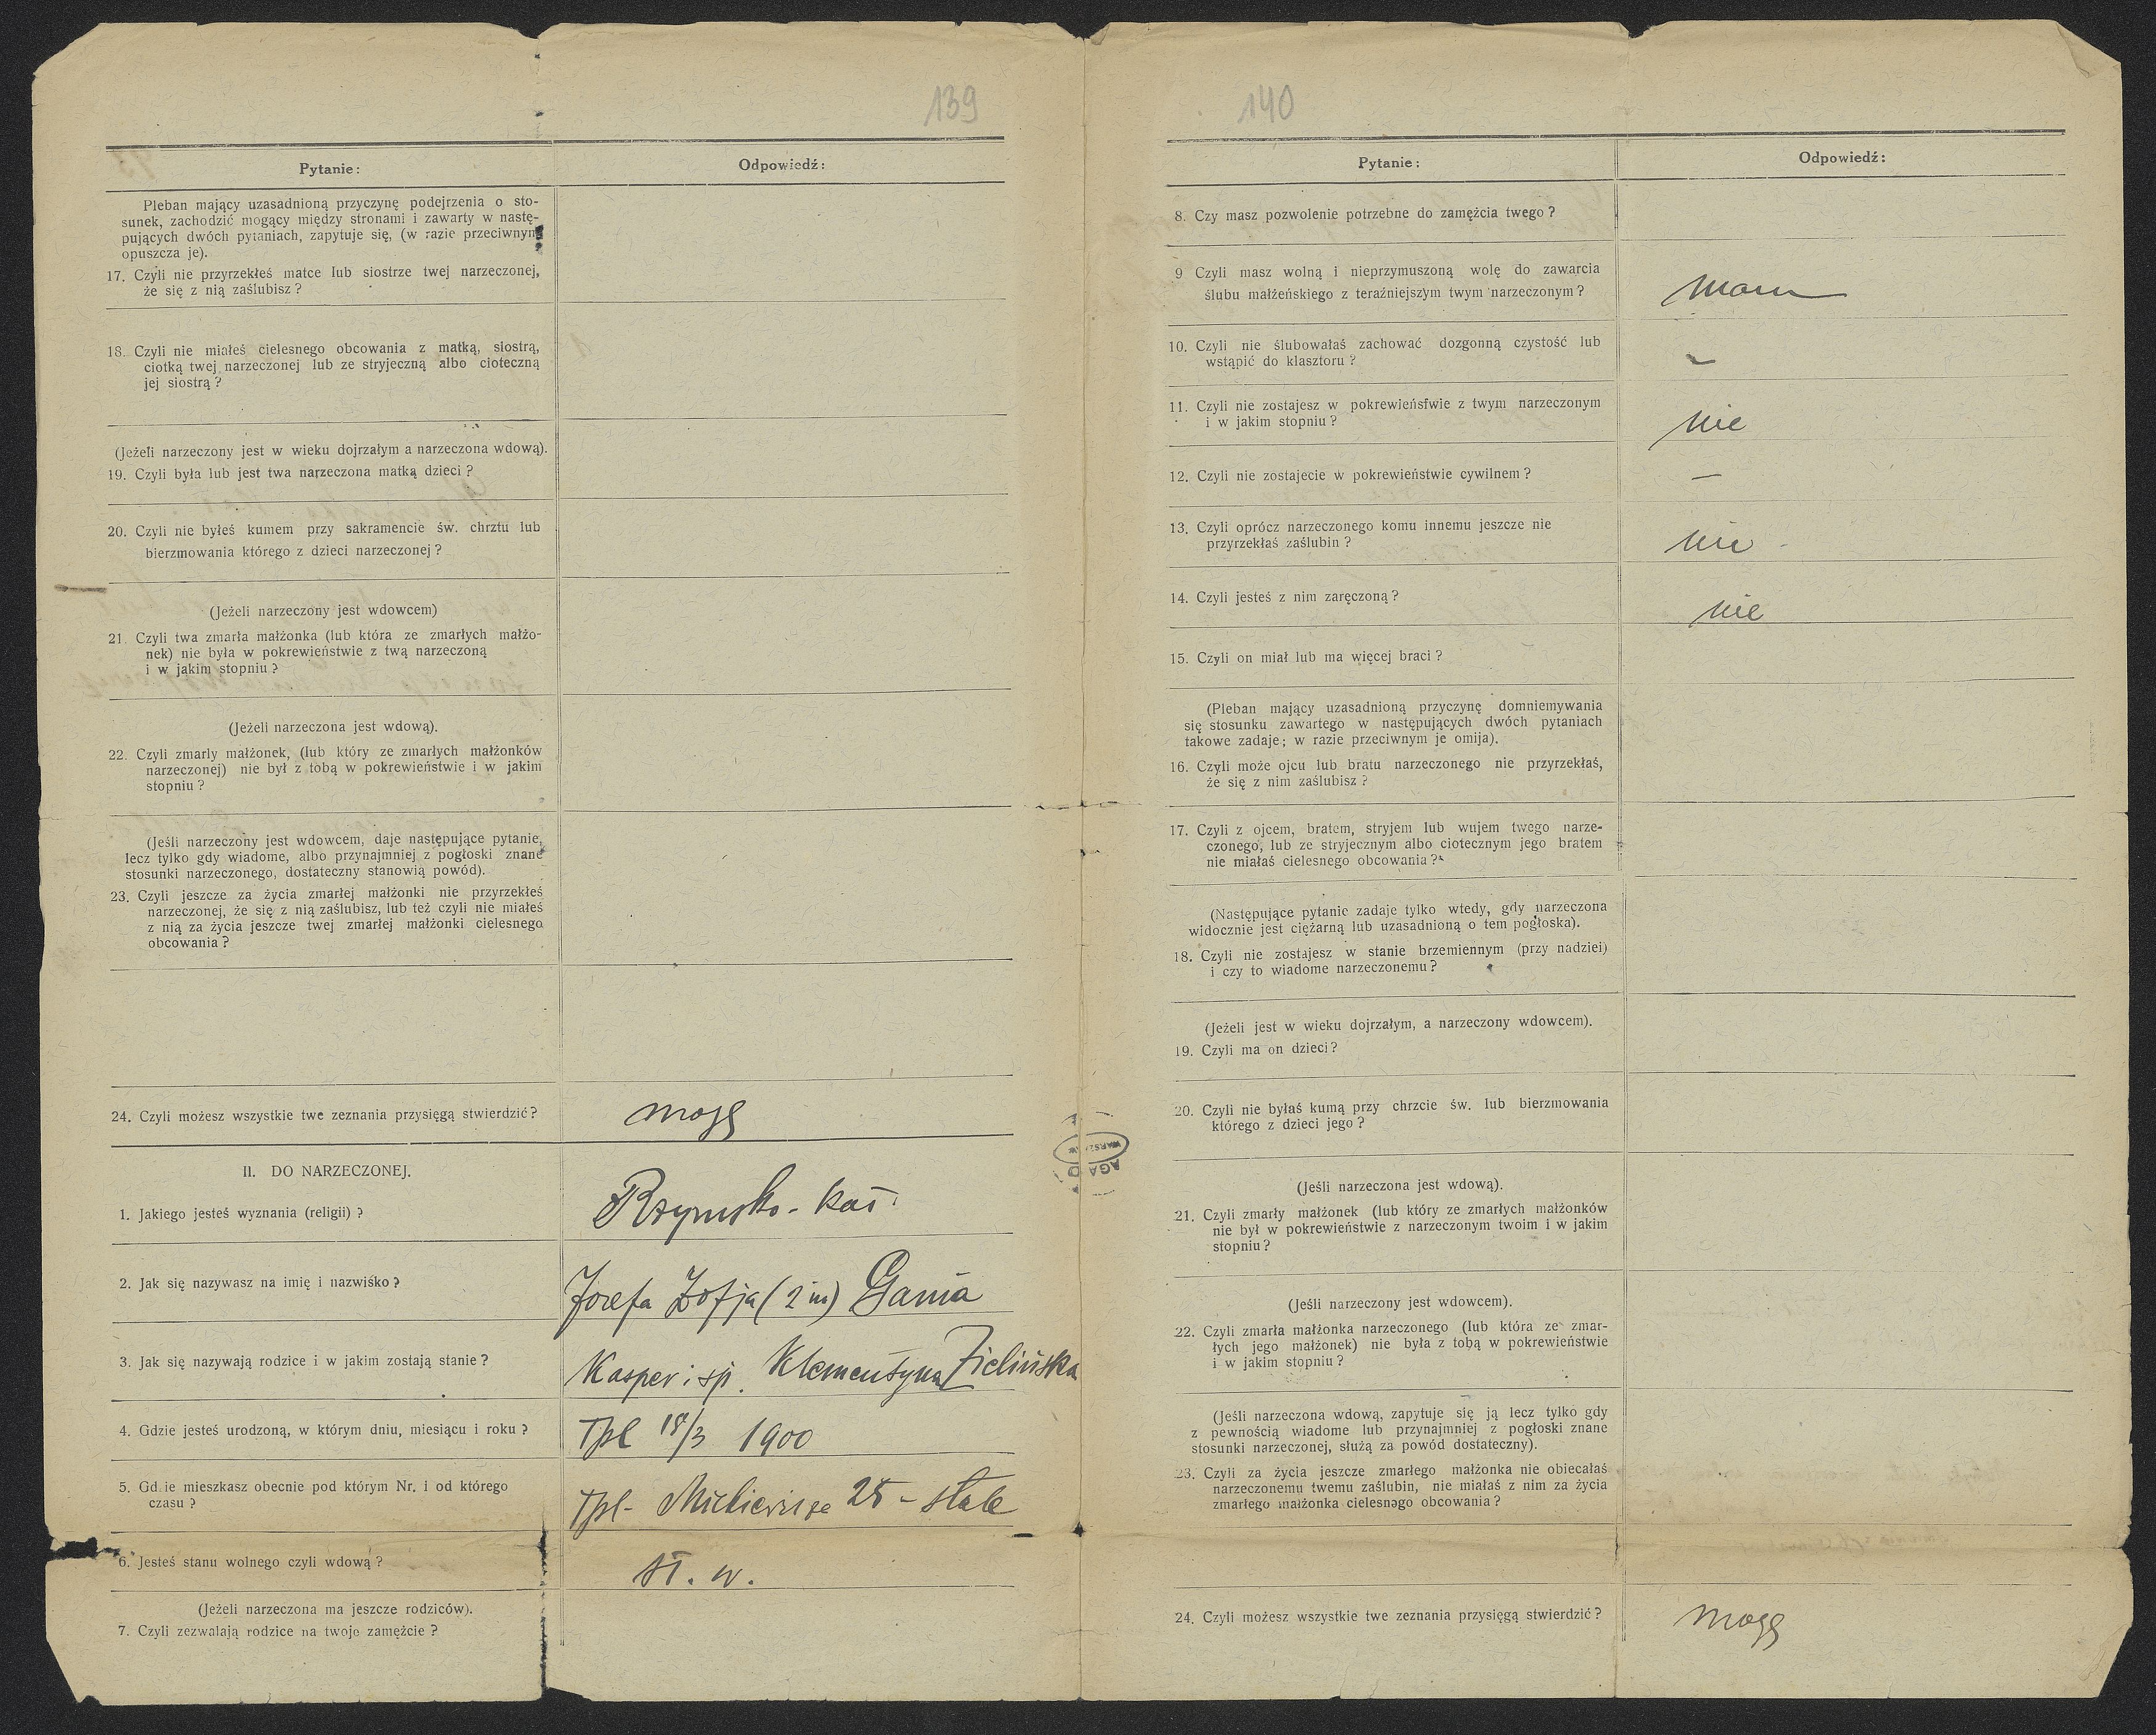 139
Pytanie:
Odpowiedź:
Pleban mający uzasadnioną przyczynę podejrzenia o sto-
sunek, zachodzić mogący między stronami i zawarty w nastę-
pujących dwóch pytaniach, zapytuje się, (w razie przeciwnym
opuszcza je).
17. Czyli nie przyrzekłeś matce lub siostrze twej narzeczonej,
że się z nią zaślubisz?
18. Czyli nie miałeś cielesnego obcowania z matką, siostrą,
ciotką twej narzeczonej lub ze stryjeczną albo cioteczną
jej siostrą?
(Jeżeli narzeczony jest w wieku dojrzałym a narzeczona wdową).
19. Czyli była lub jest twa narzeczona matką dzieci?
20. Czyli nie byłeś kumem przy sakramencie św. chrztu lub
bierzmowania którego z dzieci narzeczonej?
(Jeżeli narzeczony jest wdowcem)
21. Czyli twa zmarła małżonka (lub która ze zmarłych małżo-
nek) nie była w pokrewieństwie z twą narzeczoną
i w jakim stopniu?
(Jeżeli narzeczona jest wdową).
22. Czyli zmarly małżonek, (lub który ze zmarłych małżonków
narzeczonej) nie był z tobą w pokrewieństwie i w jakim
stopniu?
(Jeśli narzeczony jest wdowcem, daje następujące pytanie,
lecz tylko gdy wiadome, albo przynajmniej z pogłoski znane
stosunki narzeczonego, dostateczny stanowią powód).
23. Czyli jeszcze za życia zmarłej małżonki nie przyrzekłeś
narzeczonej, że się z nią zaślubisz, lub też czyli nie miałeś
z nią za życia jeszcze twej zmarłej małżonki cielesnego
obcowania?
24. Czyli możesz wszystkie twe zeznania przysięgą stwierdzić?
mogę
II. DO NARZECZONEJ.
1. Jakiego jesteś wyznania (religii)?
Rzymsko-kat.
2. Jak się nazywasz na imię i nazwiśko?
Józefa Zofja (2 im) Gania
3. Jak się nazywają rodzice i w jakim zostają stanie?
Kasper i śp. Klementyna Zielińska
4. Gdzie jesteś urodzoną, w którym dniu, miesiącu i roku?
Tpl 18/3 1900
5. Gd.ie mieszkasz obecnie pod którym Nr. i od którego
czasu?
Tpl- Mickiewicza 25 - stale
6. Jesteś stanu wolnego czyli wdową?
st. w.
(Jeżeli narzeczona ma jeszcze rodziców).
7. Czyli zezwalają rodzice na twoje zamężcie?
140
Pytanie:
Odpowiedź:
8. Czy masz pozwolenie potrzebne do zamężcia twego?
9 Czyli masz wolną i nieprzymuszoną wolę do zawarcia
ślubu małżeńskiego z teraźniejszym twym narzeczonym?
mam
10. Czyli nie ślubowałaś zachować dozgonną czystość lub
wstąpić do klasztoru?
-
11. Czyli nie zostajesz w pokrewieństwie z twym narzeczonym
i w jakim stopniu?
nie
12. Czyli nie zostajecie w pokrewieństwie cywilnem?
-
13. Czyli oprócz narzeczonego komu innemu jeszcze nie
przyrzekłaś zaślubin?
nie -
14. Czyli jesteś z nim zaręczoną?
nie
15. Czyli on miał lub ma więcej braci?
(Pleban mający uzasadnioną przyczynę domniemywania
się stosunku zawartego w następujących dwóch pytaniach
takowe zadaje; w razie przeciwnym je omija).
16. Czyli może ojcu lub bratu narzeczonego nie przyrzekłaś,
że się z nim zaślubisz?
17. Czyli z ojcem, bratem, stryjem lub wujem twego narze-
czonego, lub ze stryjecznym albo ciotecznym jego bratem
nie miałaś cielesnego obcowania?
(Następujące pytanie zadaje tylko wtedy, gdy narzeczona
widocznie jest ciężarną lub uzasadnioną o tem pogłoska).
18. Czyli nie zostajesz w stanie brzemiennym (przy nadziei)
i czy to wiadome narzeczonemu?
(Jeżeli jest w wieku dojrzałym, a narzeczony wdowcem).
19. Czyli ma on dzieci?
20. Czyli nie byłaś kumą przy chrzcie św. lub bierzmowania
którego z dzieci jego?
(Jeśli narzeczona jest wdową).
21. Czyli zmarły małżonek (lub który ze zmarłych małżonków
nie był w pokrewieństwie z narzeczonym twoim i w jakim
stopniu?
(Jeśli narzeczony jest wdowcem).
22. Czyli zmarła małżonka narzeczonego (lub która ze zmar-
łych jego małżonek) nie była z tobą w pokrewieństwie
i w jakim stopniu?
(Jeśli narzeczona wdową, zapytuje się ją lecz tylko gdy
z pewnością wiadome lub przynajmniej z pogłoski znane
stosunki narzeczonej, służą za powód dostateczny).
23. Czyli za życia jeszcze zmarłego małżonka nie obiecałaś
narzeczonemu twemu zaślubin, nie miałaś z nim za życia
zmarłego małżonka cielesnego obcowania?
24. Czyli możesz wszystkie twe zeznania przysięgą stwierdzić?
mogę